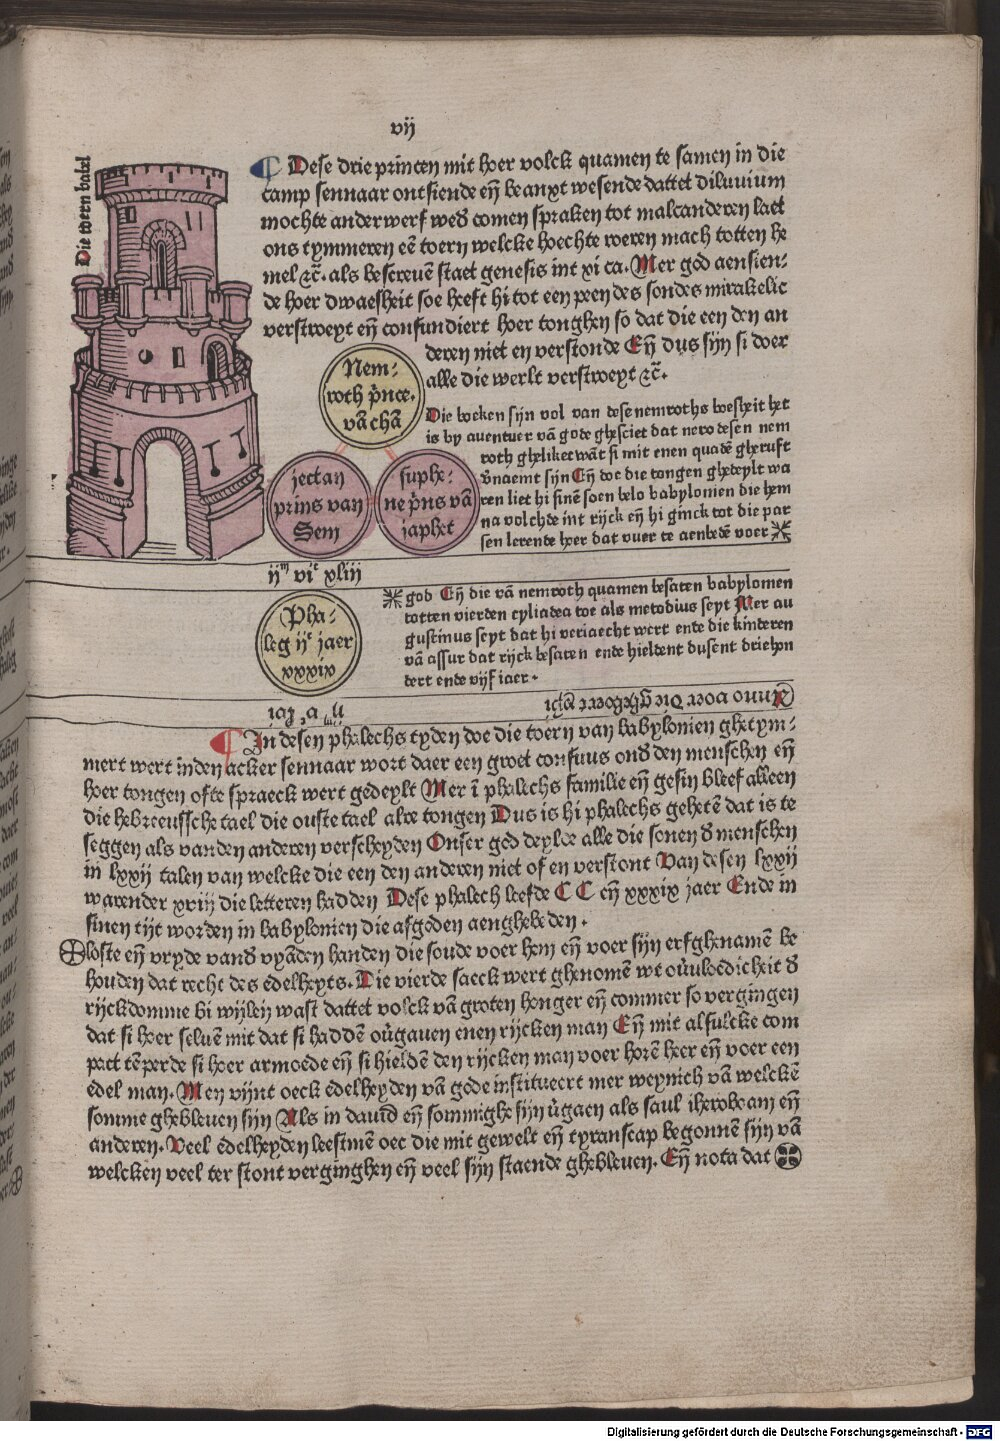 vij
Die toern babel
Dese drie princen mit hoer volck quamen te samen in die
camp sennaar ontsiende eñ beanxt wesende dattet diluvium
mochte anderwerf wed comen spraken tot malcanderen laet
ons tymmeren eē toern welcke hoechte roeren mach totten he
mel ꝛc̄. als bescreuē staet genesis int xi ca. Mer god aensien⸗
de hoer dwaesheit soe heeft hi tot een peen des sondes mirakelic
verstroeyt eñ confundiert hoer tonghen so dat die een den an
deren niet en verstonde Eñ dus sijn si doer
alle die werlt verstroeyt ꝛc̄.
Nem⸗
roth p̄nce.
vā chā
jectan
prins van
Sem
suphe⸗
ne p̄ns vā
japhet
Die boeken sijn vol van dese nemroths boesheit het
is by auentuer vā gode ghesciet dat nero desen nem
roth gheliket wāt si mit enen quadē gheruft
v̄naemt sijn Eñ doe die tongen ghedeylt wa
ren liet hi sinē soen belo babylonien die hem
na volchde int rijck eñ hi ginck tot die par
sen lerende hoer dat vuer te aenbedē voer
ijᵐ viᶜ xliij
Pha⸗
leg ijᶜ jaer
xxxix
god Eñ die vā nemroth quamen besaten babylomen
totten vierden cyliadea toe als metodius seyt Mer au
gustinus seyt dat hi veriaecht wert ende die kinderen
vā assur dat rijck besaten ende hieldent dusent driehon
dert ende vijf iaer.
Anno voer die gheboert xp̄i
In desen phalechs tyden doe die toern van babylonien ghetym⸗
mert wert inden acker sennaar wort daer een groet confuus ond den menschen eñ
hoer tongen ofte spraeck wert gedeylt Mer ī phalechs familie eñ gesin bleef alleen
die hebreeussche tael die ouste tael alre tongen Dus is hi phalechs gehetē dat is te
seggen als vanden anderen verscheyden Onser god deylde alle die sonen d menschen
in lxxij talen van welcke die een den anderen niet of en verstont Van desen lxxij
warender xviij die letteren hadden Dese phalech leefde C C eñ xxxix jaer Ende in
sinen tijt worden in babylonien die afgoden aenghebeden.
loste eñ vryde vand vyādē handen die soude voer hem eñ voer sijn erfghenamē be
houden dat recht des edelheyts. Die vierde saeck wert ghenomē wt ou̇uloedicheit d
rijckdomme bi wijlen wast dattet volck vā groten honger eñ commer so vergingen
dat si hoer seluē mit dat si haddē ou̇gauen enen rijcken man Eñ mit alsulcke com
pact tēperde si hoer armoede eñ si hieldē den rijcken man voer horē heer eñ voer een
edel man. Men vijnt oeck edelheyden vā gode institueert mer weynich vā welckē
somme ghebleuen sijn Als in dauid eñ sommighe sijn v̇gaen als saul iheroboam eñ
anderen. Veel edelheyden leestmē oec die mit gewelt eñ tyranscap begonnē sijn vā
welcken veel ter stont verginghen eñ veel sijn staende ghebleuen. Eñ nota dat
Digitalisierung gefördert durch die Deutsche Forschungsgemeinschaft - DFG